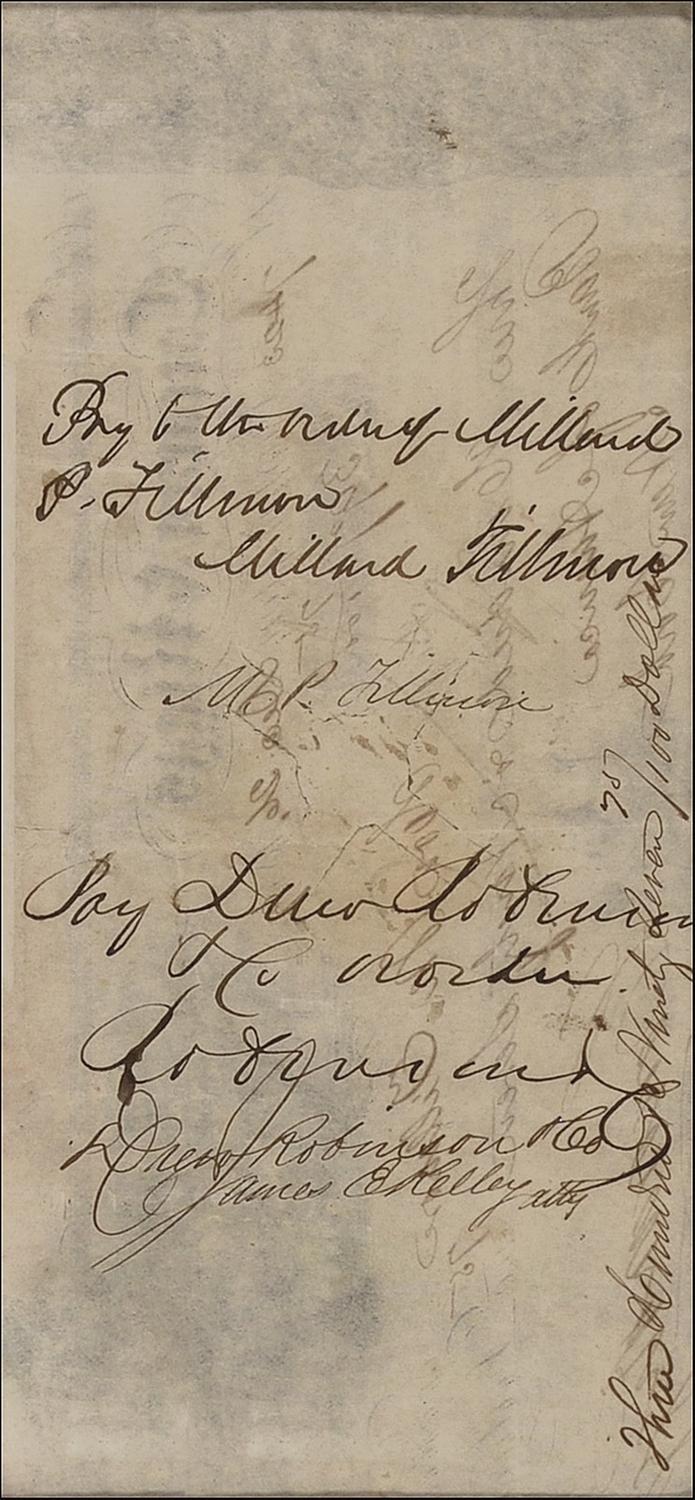 Pay to the order of Millard
P. Fillmore
Millard Fillmore
M. P. Fillmore
Pay Drew Robinson
& Co or order
Drew Robinson & Co
James E Kelley atty
Three Hundred & Ninety Seven 75/100 Dollars